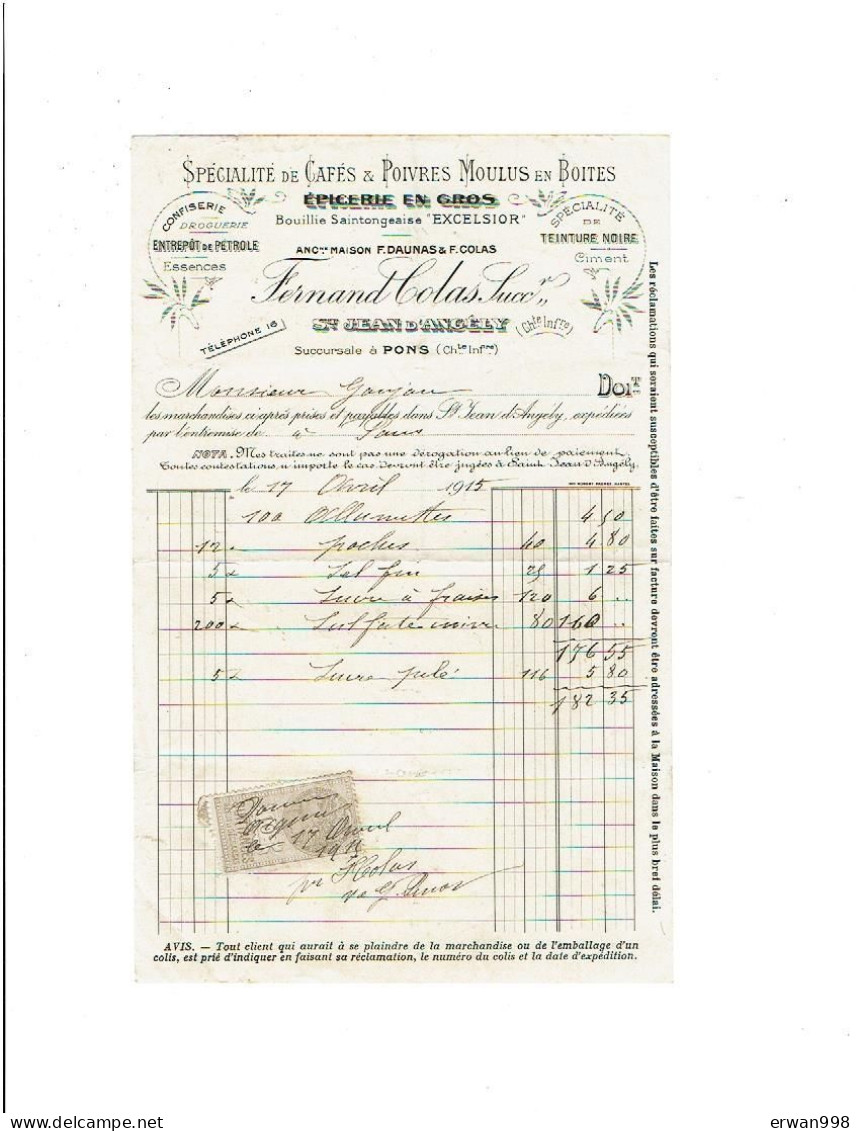 SPÉCIALITÉ DE CAFÉS & POIVRES MOULUS EN BOITES
ÉPICERIE EN GROS
Bouillie Saintongeaise "EXCELSIOR"
CONFISERIE
DROGUERIE
ENTREPÔT DE PETROLE
Essences
SPÉCIALITÉ
DE
TEINTURE NOIRE
Ciment
ANCne MAISON F. DAUNAS & F. COLAS
Fernand Colas, Succr
St JEAN D'ANGÉLY (Chte Infre)
TÉLÉPHONE 16
Succursale à PONS (Chte Infre)
Monsieur Goujou DOIT
les marchandises ci-après prises et payables dans St Jean d'Angély, expédiées
par l'entremise de à
NOTA. Mes traites ne sont pas une dérogation au lieu de paiement.
Toutes contestations, n'importe le cas, devront être jugées à Saint Jean d'Angély.
le 17 Avril 1915
100 Allumettes 4 50
12 poches 40 4 80
5 Sel fin 25 1 25
5 Sucre à fraises 120 6 "
200 Sulfate cuivre 80 160 "
176 55
5 Sucre pilé 116 5 80
182 35
17 Avril
1915
FColas
Les réclamations qui seraient susceptibles d'être faites sur facture devront être adressées à la Maison dans le plus bref délai.
AVIS. — Tout client qui aurait à se plaindre de la marchandise ou de l'emballage d'un
colis, est prié d'indiquer en faisant sa réclamation, le numéro du colis et la date d'expédition.
erwan998